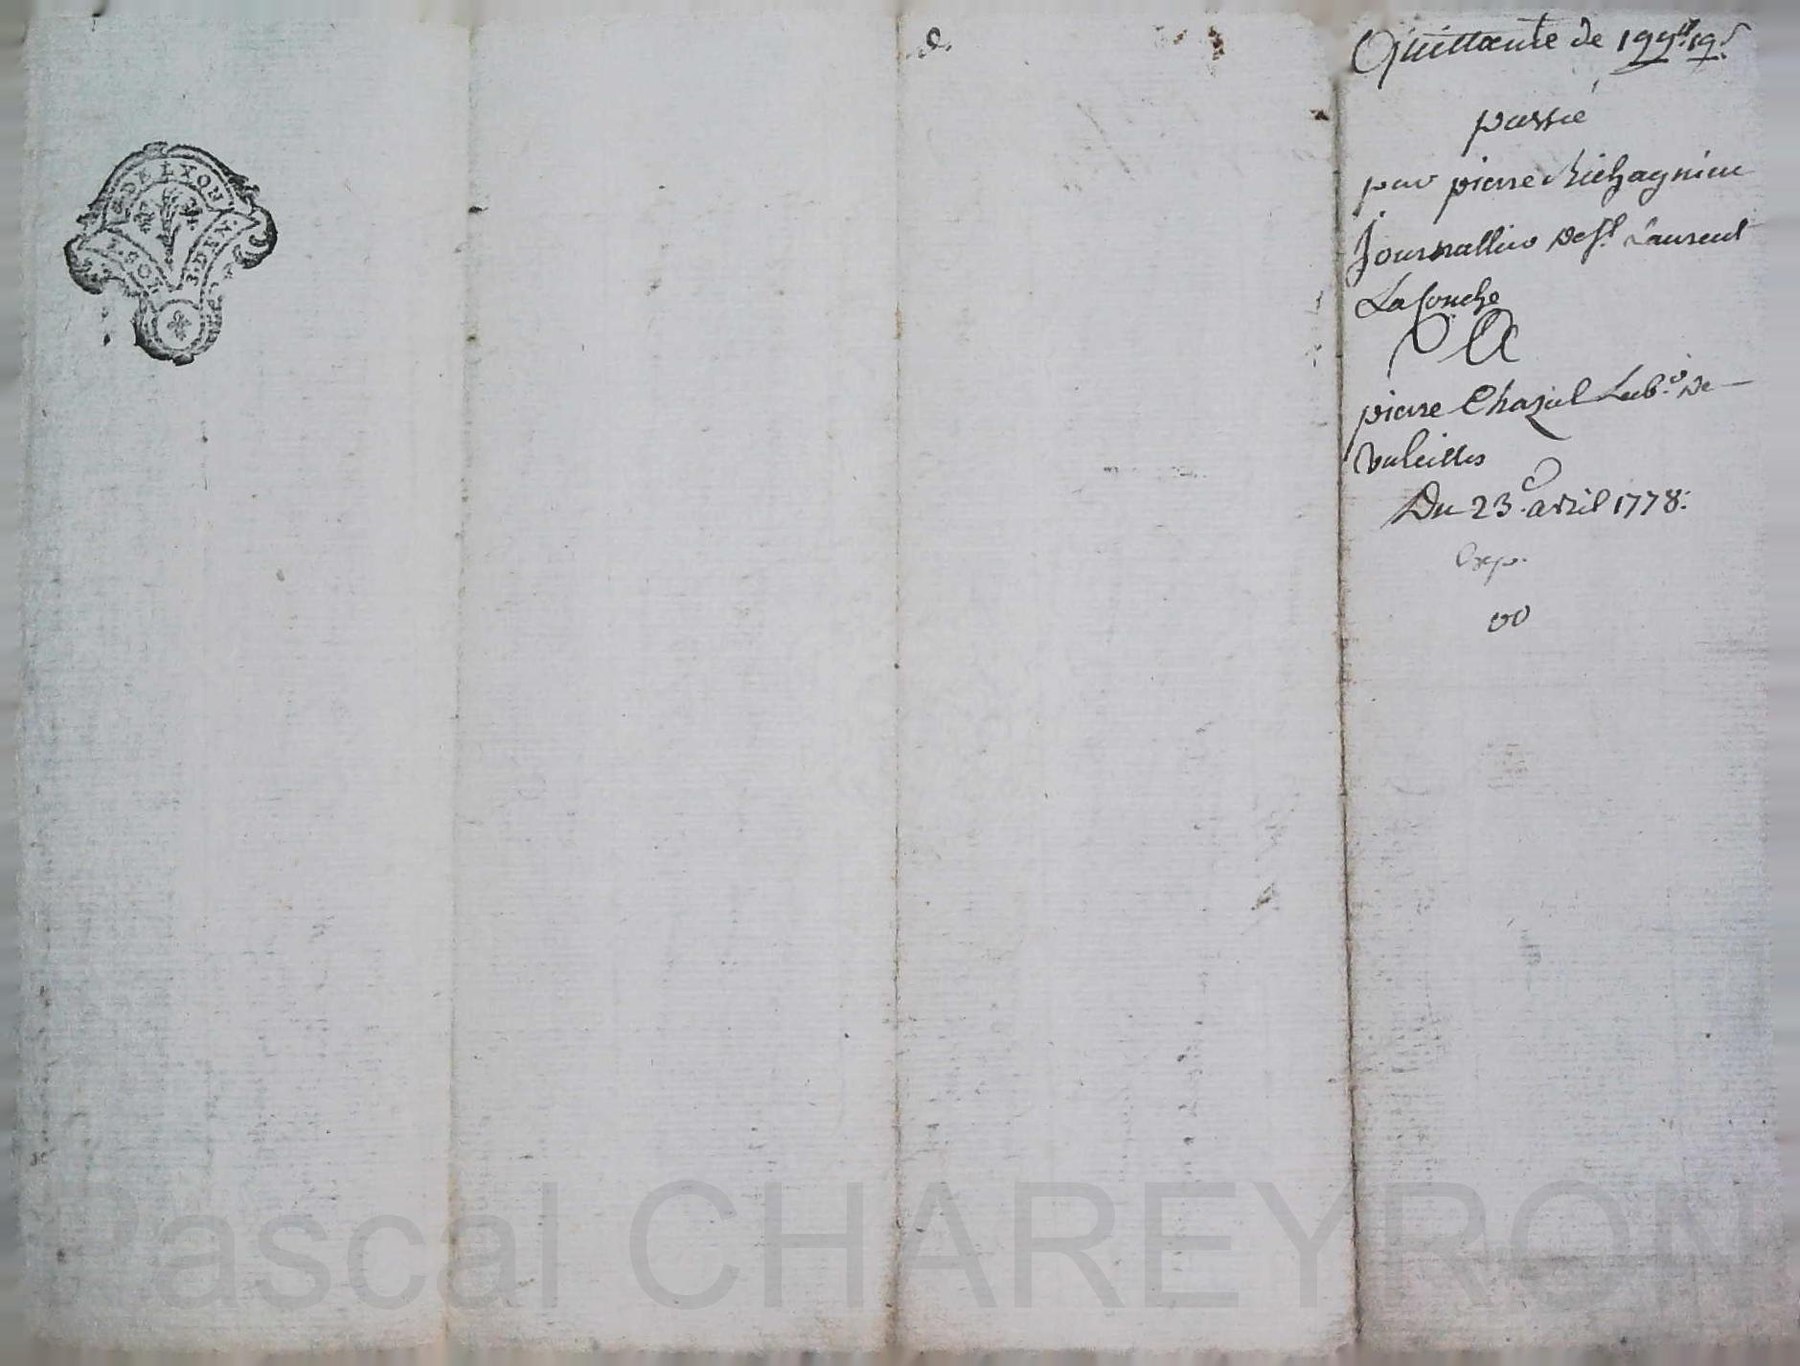 G. DE LYON
2. SOLS 8. DEN.
Quittance de 199ᵗᵗ 19ˢ
passé
par pierre
Journallier de Sᵗ Laurent
La Conche
A
pierre Chazal Labʳ de
valeilles
Du 23. avril 1778.
Exp.
Pascal CHAREYRON